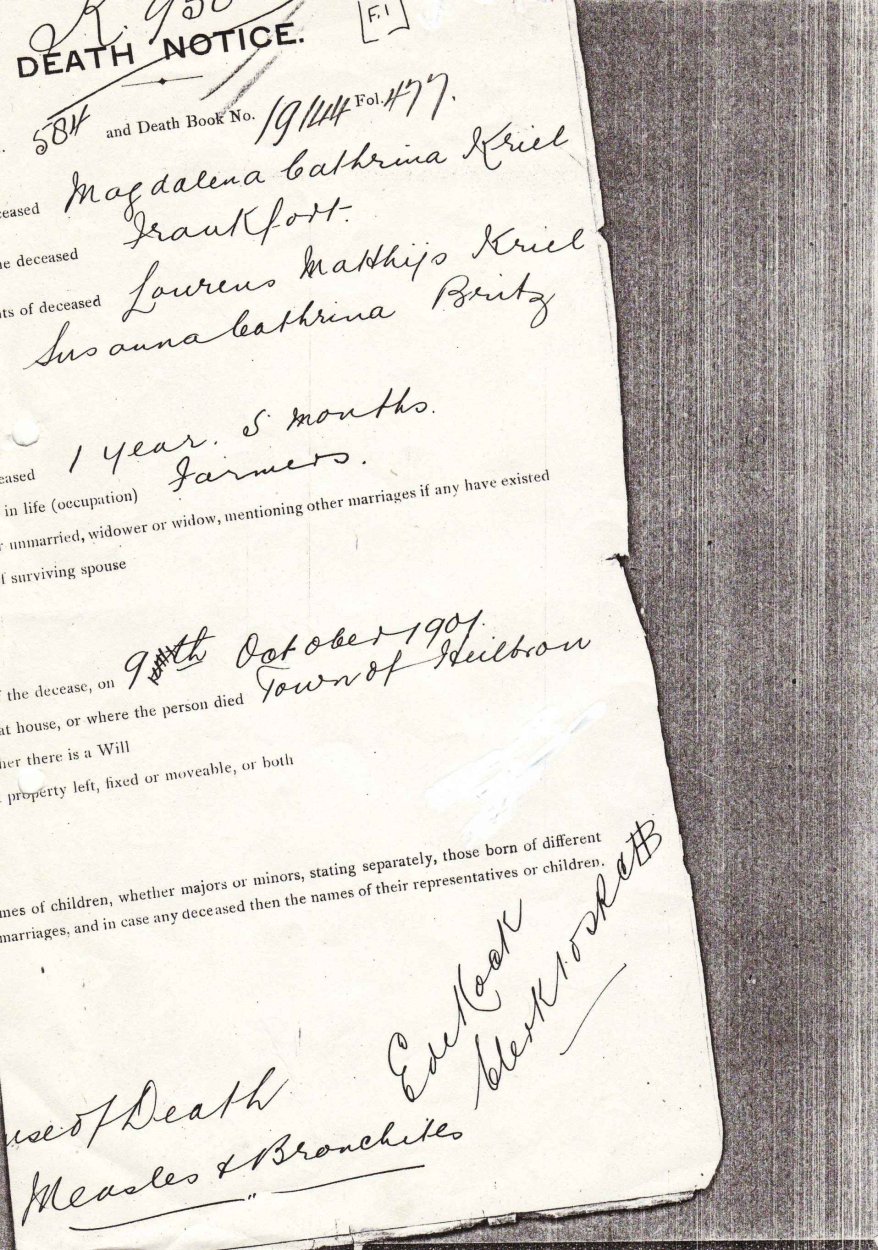 K. 950
F.1
DEATH NOTICE.
584 and Death Book No. 19144 Fol. 477.
eased Magdalena Cathrina Kriel
e deceased Frankfort.
ts of deceased Lourens Matthijs Kriel
Susanna Cathrina Britz
eased 1 year. 5 months.
in life (occupation) Farmers.
r unmarried, widower or widow, mentioning other marriages if any have existed
f surviving spouse
f the decease, on 9th October 1901.
at house, or where the person died Town of Heilbron
her there is a Will
property left, fixed or moveable, or both
mes of children, whether majors or minors, stating separately, those born of different
marriages, and in case any deceased then the names of their representatives or children.
Clerk to
use of Death
Measles & Bronchites